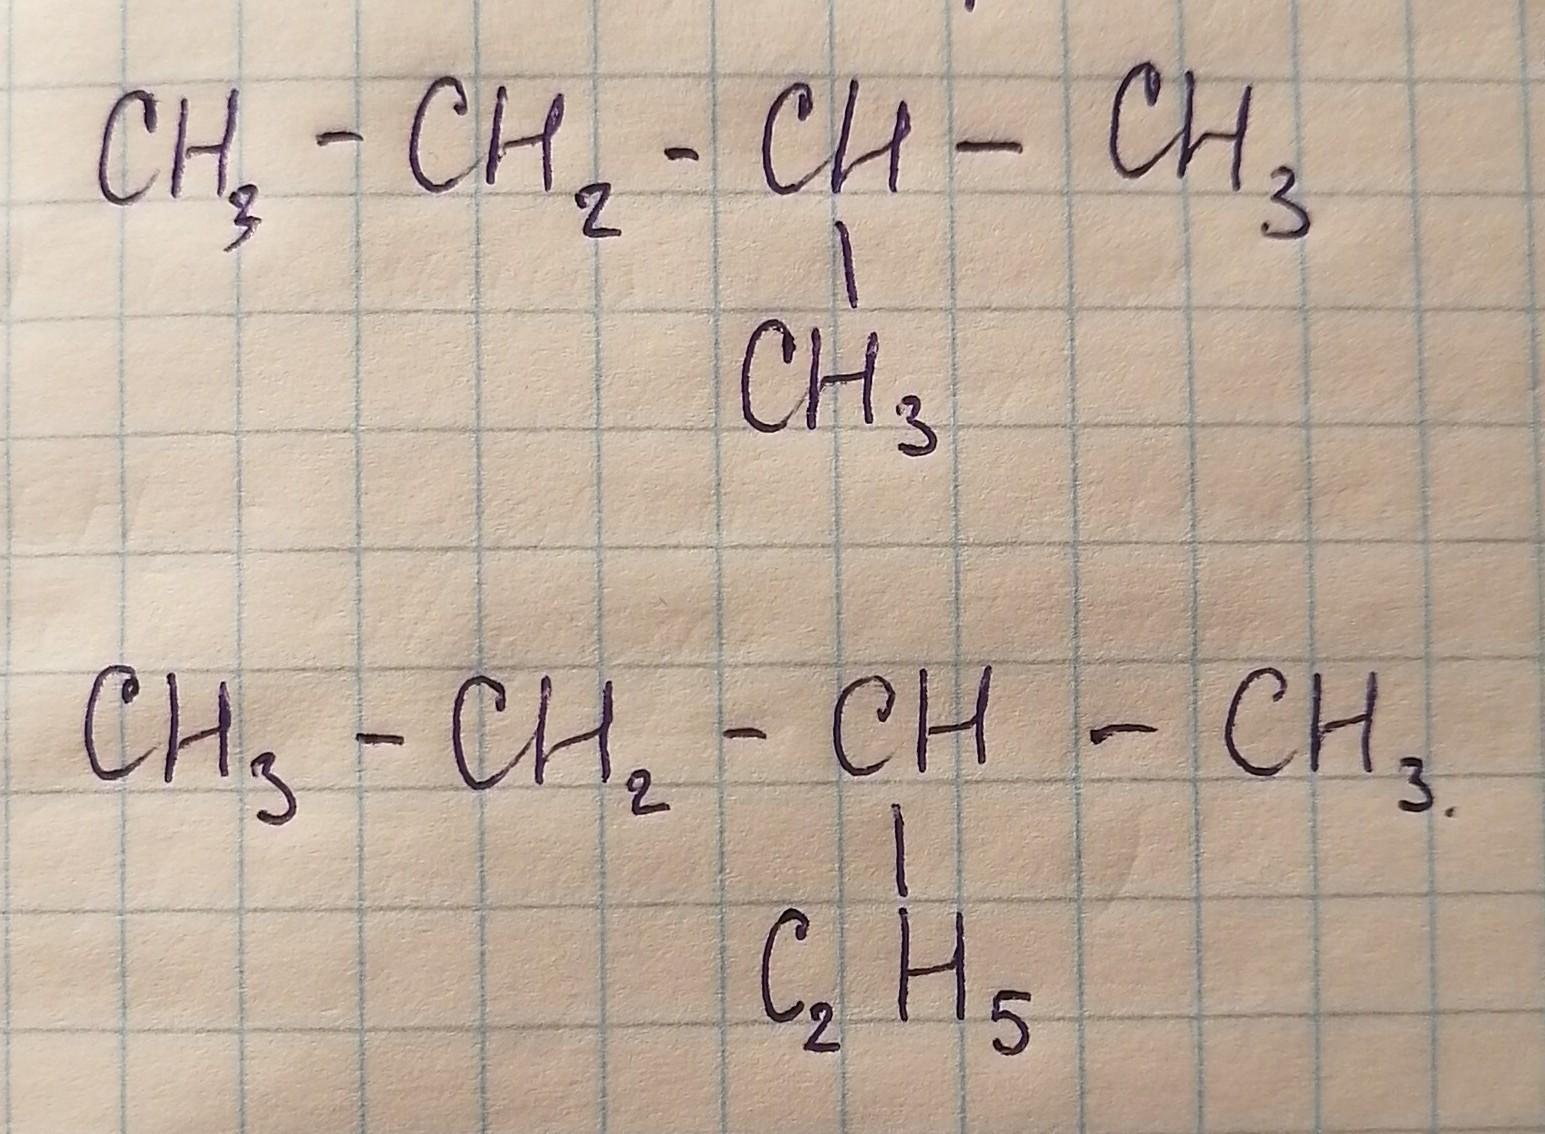 CH₃ - CH₂ - CH - CH₃
|
CH₃
CH₃ - CH₂ - CH - CH₃.
|
C₂H₅